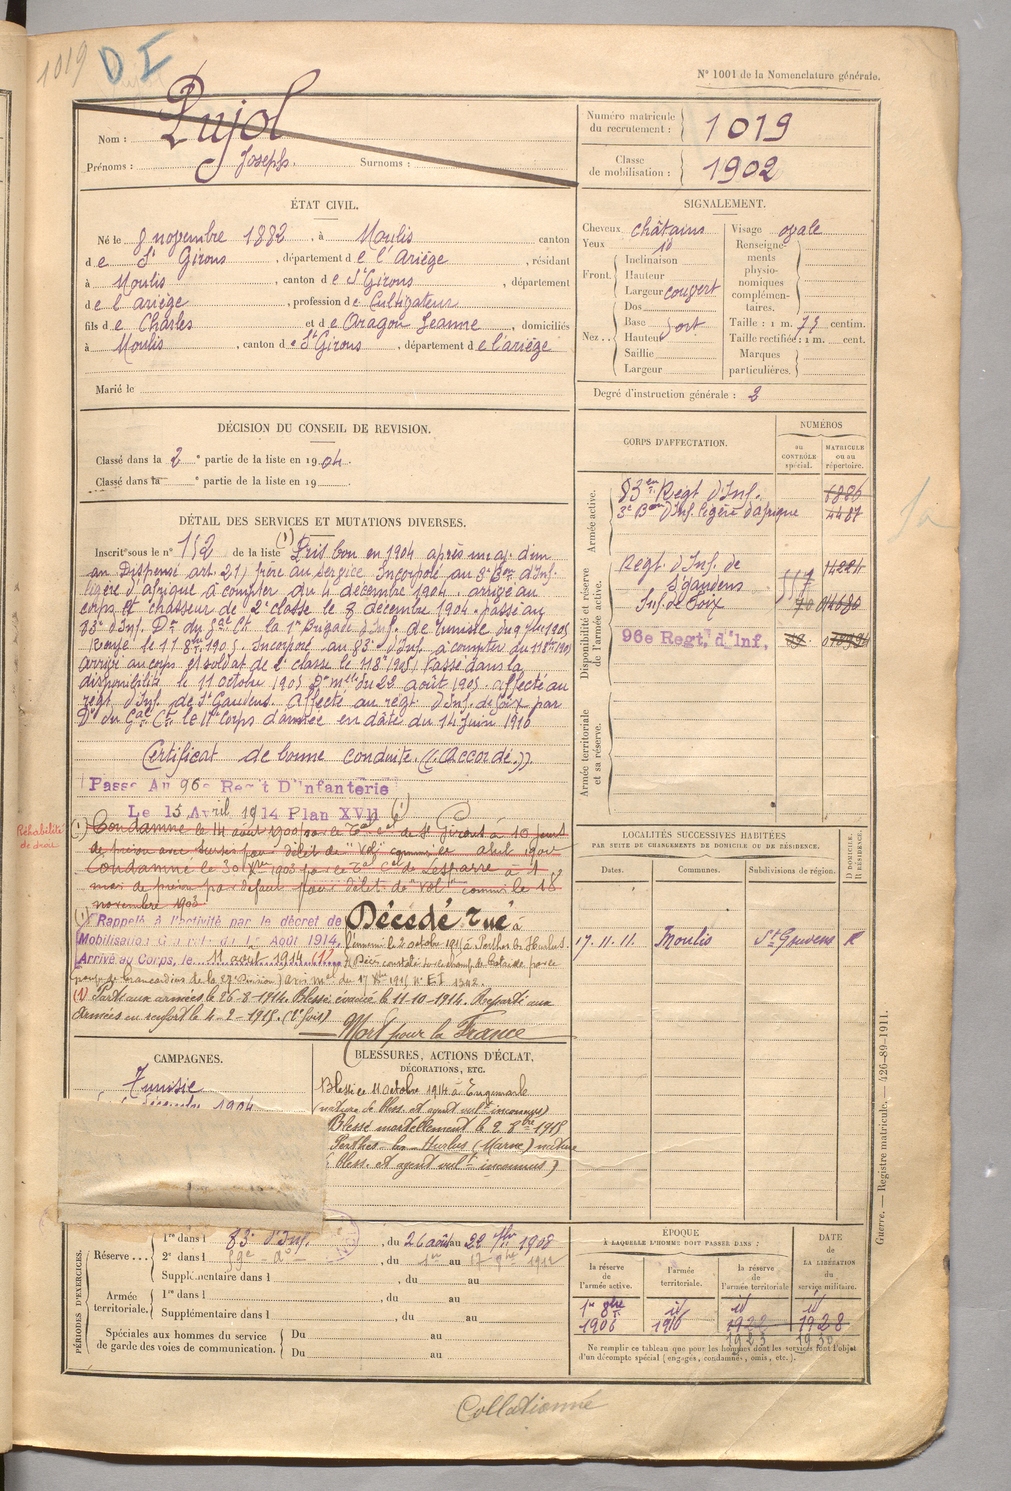 1019 D I
N° 1001 de la Nomenclature générale.
Nom : Pujol
Prénoms : Joseph. Surnoms :
Numéro matricule du recrutement : 1019
Classe de mobilisation : 1902
ÉTAT CIVIL.
Né le 8 novembre 1882, à Moulis canton
de St Girons, département de l'Ariège, résidant
à Moulis, canton de St Girons, département
de l'ariège, profession de Cultivateur
fils de Charles et de Aragon Jeanne, domiciliés
à Moulis, canton de St Girons, département de l'ariège
Marié le
SIGNALEMENT.
Cheveux châtains Visage ovale
Yeux id
Front. Inclinaison
Hauteur
Largeur couvert
Nez .. Dos
Base fort
Hauteur
Saillie
Largeur
Renseignements physionomiques complémentaires.
Taille : 1 m. 75 centim.
Taille rectifiée : 1 m. cent.
Marques particulières.
Degré d'instruction générale : 2
DÉCISION DU CONSEIL DE REVISION.
Classé dans la 2e partie de la liste en 1904.
Classé dans la e partie de la liste en 19
DÉTAIL DES SERVICES ET MUTATIONS DIVERSES.
Inscrit sous le n° 152 de la liste (1) Pris bon en 1904 après un aj. d'un
an Dispensé art. 21, frère au service. Incorporé au 3e Bon d'Inf.
légère d'afrique à compter du 4 décembre 1904. arrivé au
corps et chasseur de 2e classe le 8 décembre 1904. passé au
83e d'Inf. Don du Gal Ct la 1re Brigade d'Inf. de Tunisie du 9
Rayé le 11 8bre 1905. Incorporé au 83e d'Inf. à compter du 11 8bre 1905
arrivé au corps et soldat de 2e classe le 11 8bre 1905. Passé dans la
disponibilité le 11 octobre 1905 Don mlle du 22 août 1905. affecté au
régt d'Inf. de St Gaudens. Affecté au régt d'Inf. de Foix par
Don du Gal Ct le 17e Corps d'armée en date du 14 juin 1910
Certificat de bonne conduite. ((Accordé.))
Passé Au 96e Regt D'Infanterie
Le 15 Avril 1914 Plan XVII (1)
Réhabilité de droit
(1) Condamné le 14 août 1900 par le Tal Cel de St Girons à 10 jours
de prison avec sursis pour délit de "Vol" commis en avril 1900
Condamné le 30 Xbre 1903 par le Tal Cel de Lesparre à 1
mois de prison par défaut pour délit de "vol" commis le 18
novembre 1903
(1) Rappelé à l'activité par le décret de Décédé Tué à
Mobilisation Générale du 1er Août 1914. l'ennemi le 2 octobre 1915 à Perthes les Hurlus.
Arrivé au Corps, le 11 août 1914 Décès constaté sur le champ de bataille par le
groupe de brancardiers de la division) avis mel du 17 Xbre 1915 N° EI 1342.
(1) Parti aux armées le 26-8-1914. Blessé évacué le 11-10-1914. Reparti aux
armées en renfort le 4-2-1915. (2e fois)
Mort pour la France
CORPS D'AFFECTATION.
NUMÉROS
au CONTRÔLE spécial.
MATRICULE ou au répertoire.
Armée active.
83en Régt d'Inf. 1886
3e Bon d'Inf. légère d'afrique 4487
Disponibilité et réserve de l'armée active.
Régt. d'Inf. de St gaudens 557
Inf. de Foix 70
96e Regt d'Inf.
Armée territoriale et sa réserve.
LOCALITÉS SUCCESSIVES HABITÉES
PAR SUITE DE CHANGEMENTS DE DOMICILE OU DE RÉSIDENCE.
Dates. Communes. Subdivisions de région. D. DOMICILE. R. RÉSIDENCE.
17.11.11. Moulis St Gaudens R
CAMPAGNES.
Tunisie
décembre 1904
BLESSURES, ACTIONS D'ÉCLAT,
DÉCORATIONS, ETC.
Blessé le 11 octobre 1914 à
(nature de bless. et agent vult inconnus)
Blessé mortellement le 2 8bre 1915
Perthes les Hurlus (Marne) nature
bless. et agent vult inconnus)
PÉRIODES D'EXERCICES.
Réserve ... 1re dans l 83e d'Inf., du 26 août au 22 1908
2e dans l , du 1er au 17
Supplémentaire dans l , du au
Armée territoriale. 1re dans l , du au
Supplémentaire dans l , du au
Spéciales aux hommes du service de garde des voies de communication. Du au
Du au
ÉPOQUE
À LAQUELLE L'HOMME DOIT PASSER DANS :
la réserve de l'armée active.
l'armée territoriale.
la réserve de l'armée territoriale
DATE DE LA LIBÉRATION du service militaire.
1er 8bre 1906 id 1916 id 1922 id 1928
1923 1930
Ne remplir ce tableau que pour les hommes dont les services font l'objet
d'un décompte spécial (engagés, condamnés, omis, etc.).
Guerre. — Registre matricule. — 426-89-1911.
Collationné